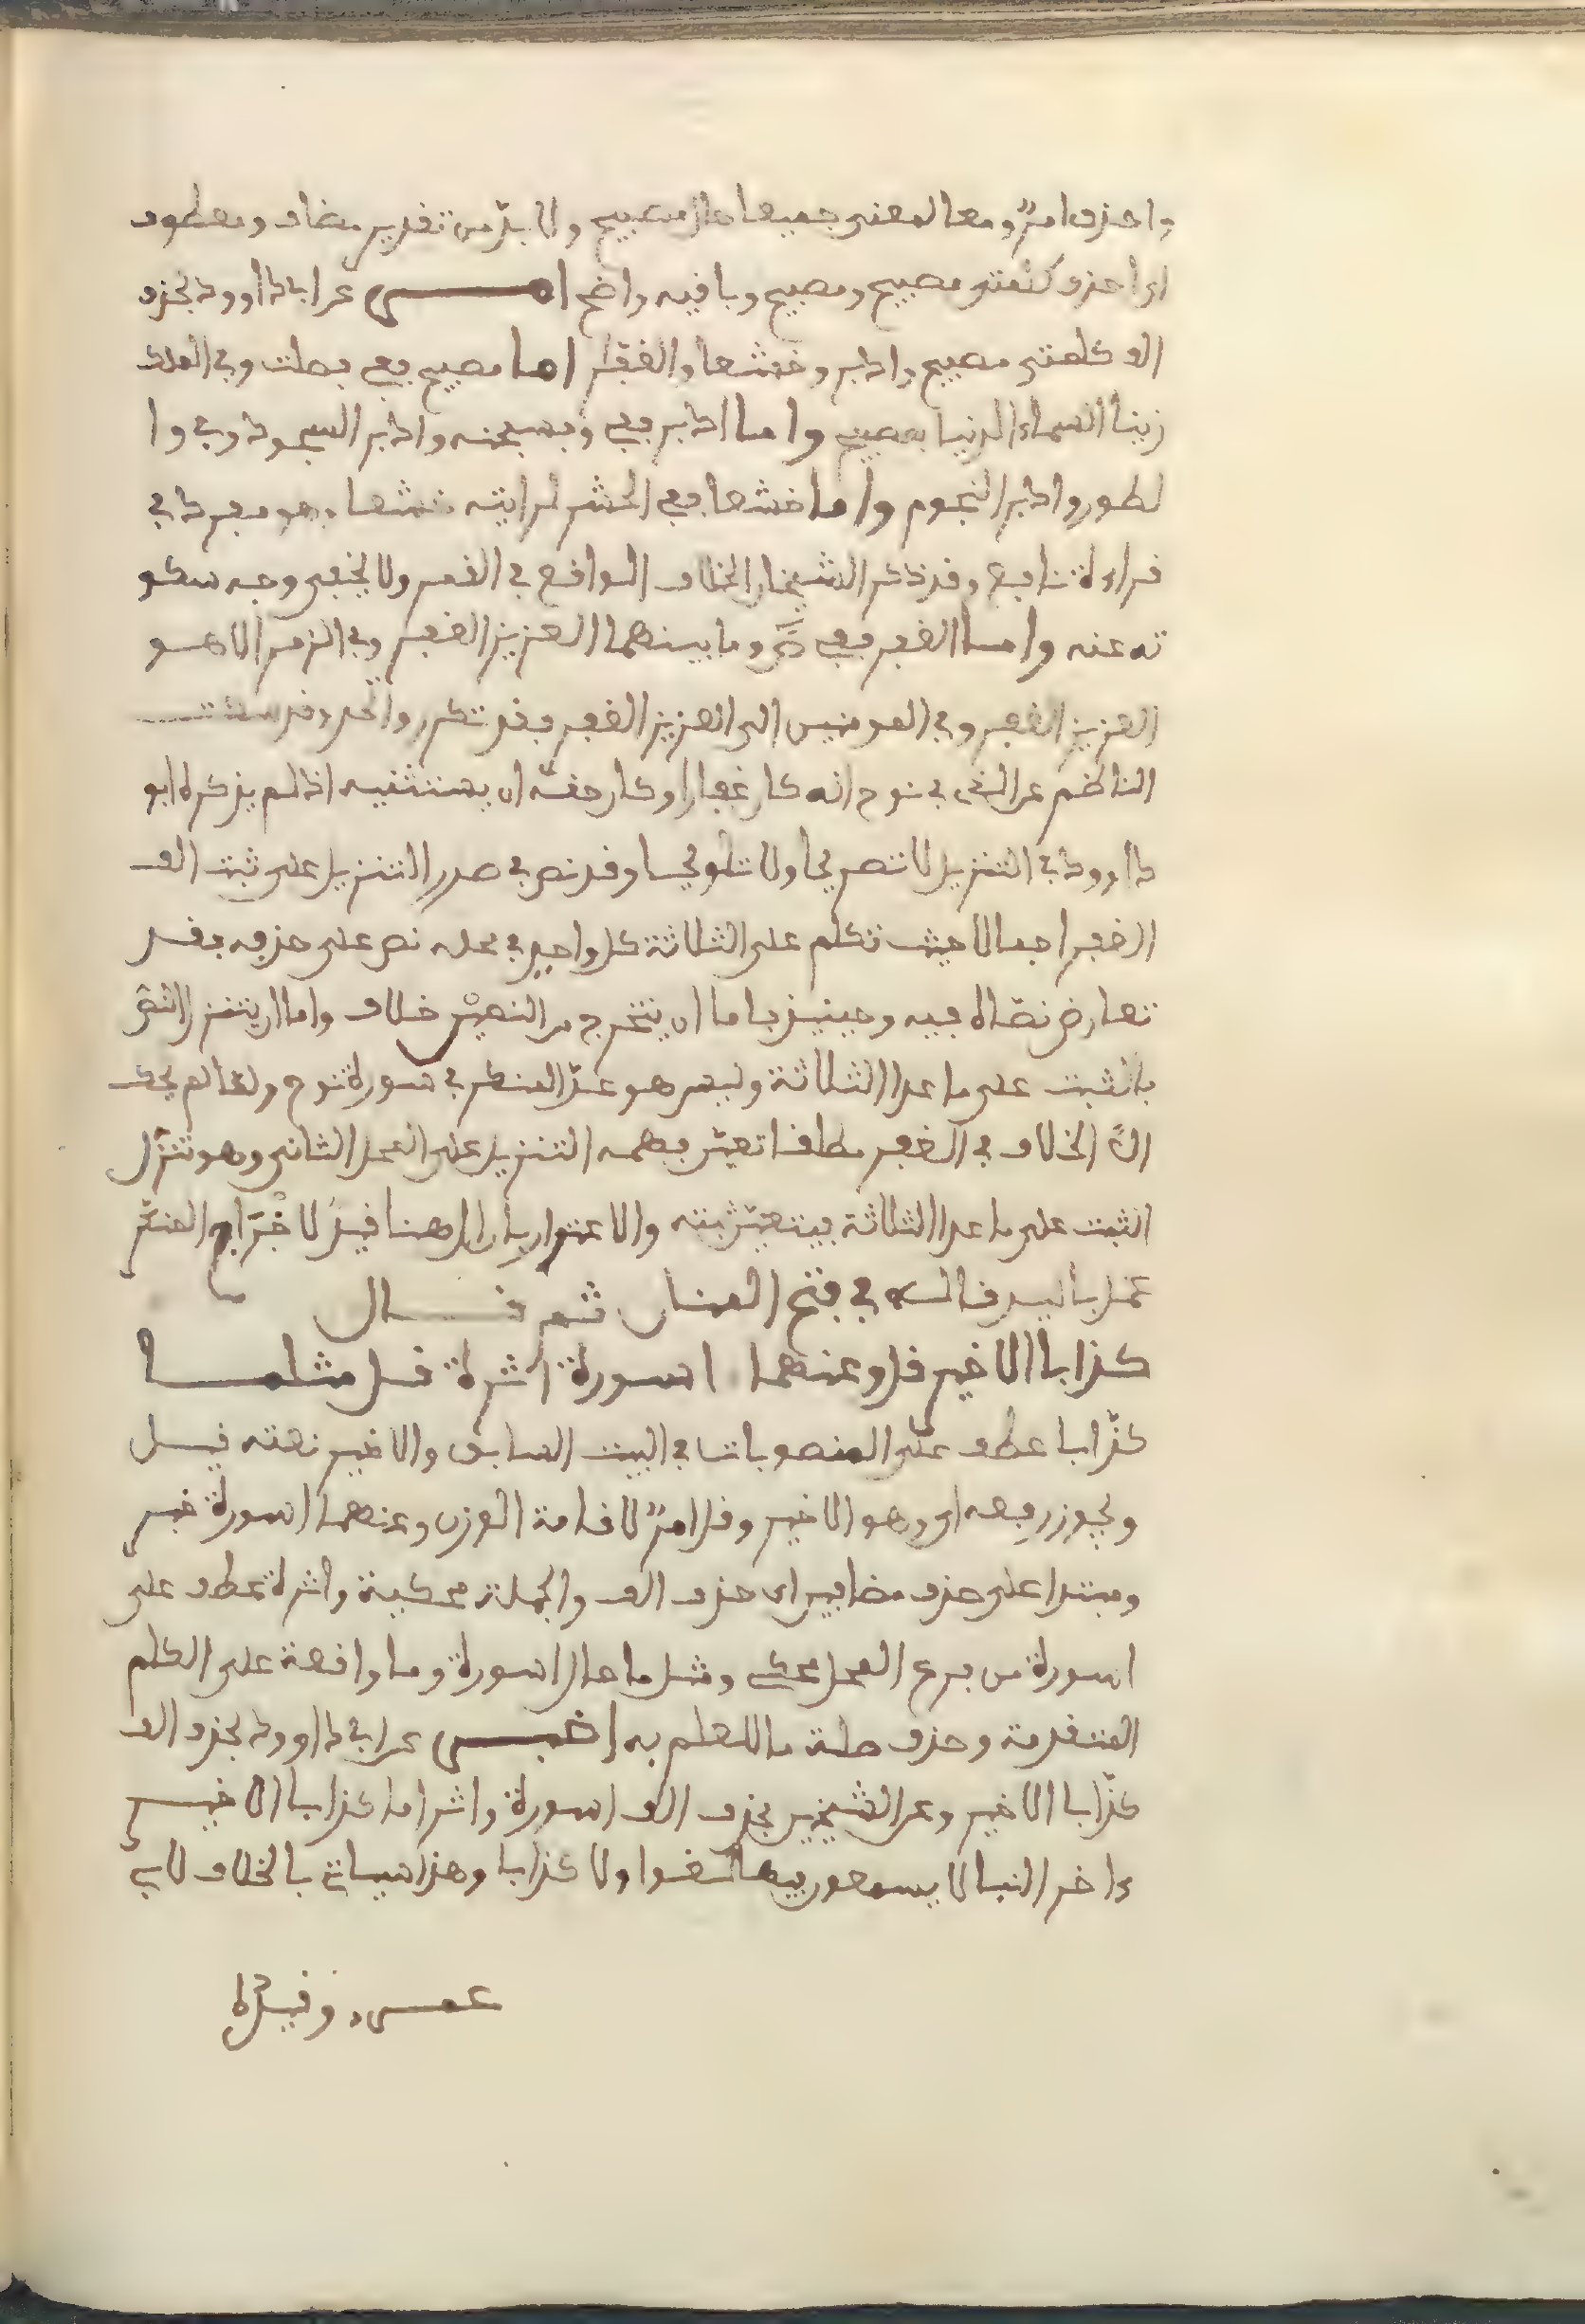 واحذف امرٌ ومعا لمعنى جميعا حال مصبيح ولا بدّ من تقدير مضاف ومعطوف
اى احذف كلمتى مصبيح ومصبيح وباقيه واضح اخبر عن ابى داوود بحذف
الف كلمتى مصبيح وادبر وخشعا والغفر اما مصبيح ففى فصلت وفى الملك
زينا السماء الدنيا بمصبيح واما ادبر ففى و فسبحه وادبر السجود وفى وا
لطور وادبر النجوم واما خشعا ففى الحشر لرايته خشعا وهو مفرد فى
قراءة نافع وقد ذكر الشيخان الخلاف الواقع فى القمر ولا يخفى وجه سكو
ته عنه واما الغفر ففى ص وما بينهما العزيز الغفر وفى الزمر الا هو
العزيز الغفر وفى المومنين الى العزيز الغفر فقد تكرر واتحد وقد سكت
الناظم عن الذى فى نوح انه كان غفارا وكان حقه ان يستثنيه اذ لم يذكره ابو
داوود فى التنزيل لا تصريحا ولا تلويحا وقد نص فى صدر التنزيل على ثبت الف
الغفر اجمالا حيث تكلم على الثلاثة كل واحد فى محله نص على حذفه فقد
تعارض نصاه فيه وحينيذ فاما ان يتخرج من النصين خلاف واما ان يتنزل النص
بالثبت على ما عدا الثلاثة وليس هو عدا المنكر فى سورة نوح ولما لم يحك
الا الخلاف فى الغفر مطلقا تعين فهمه التنزيل على المحل الثانى وهو تنزل
الثبت على ما عدا الثلاثة فيتعين ثبته والاعتذار بان ال هنا قيد لا خراج المنكر
عملا باليد قاله فى فتح المنان ثم قال
كذابا الاخير قل وعنهما اسورة اثرة قل مثلما
كذّابا عطف على المنصوبات فى البيت السابق والاخير نعته قيل
ويجوز رفعه اى وهو الاخير وقل امرٌ لاقامة الوزن وعنهما اسورة خبر
ومبتدا على حذف مضافين اى حذف الف والجملة محكية واثرة عطف على
اسورة من فرع المحل محكى ومثل ما حال اسورة وما واقعة على الكلم
المتقدمة وحذف صلة ما للعلم به اخبر عن ابى داوود بحذف الف
كذّابا الاخير وعن الشيخين بحذف الف اسورة واثر اما كذابا الاخير
ءاخر النبا لا يسمعون فيها لغوا ولا كذابا وهذا سياتى بالخلاف لابى
عمرو وقيده